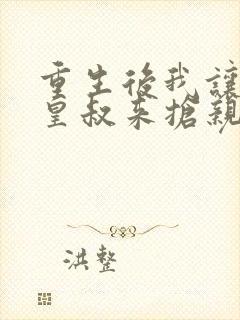 重生後我讓
皇叔來搶親
洪整